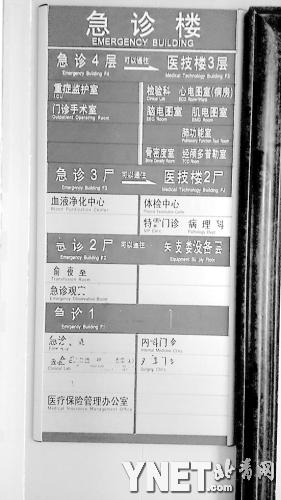 急诊楼
EMERGENCY BUILDING
急诊4层 可以通往 医技楼3层
Emergency Building F4 Medical Technology Building F3
重症监护室
ICU
门诊手术室
Outpatient Operating Room
检验科 心电图室(病房)
Clinical Lab ECG Room(Ward)
脑电图室 肌电图室
EEG Room EMG Room
肺功能室
Pulmonary Function Test Room
骨密度室 经颅多普勒室
Bone Density Room TCD Room
急诊3 可以通往 医技楼2
Emergency Building Medical Technology Building
血液净化中心
Blood Purification Center
体检中心
特需门诊 病理科
VIP Clinic Pathology Dept
急诊2 可以通往
Emergency Building Equipment Supply Floor
Transfusion Room
急诊观
Emergency Observation Room
急诊1
急诊
Clinical Lab
内科门诊
Internal Medicine Clinic
Surgery Clinic
医疗保险管理办公室
Medical Insurance Management Office
YNET.com 北青网